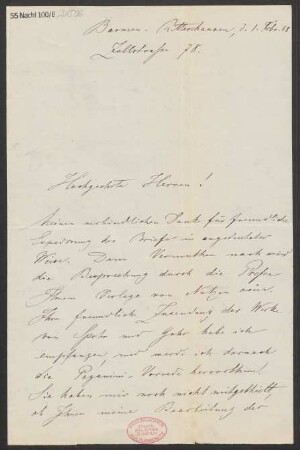 55 Nachl 100/B
Barmen-Rittershausen, d. 1. Feb.
Zollstrasse 78.
Hochgeehrte Herren!
Meinen verbindlichen Dank für freundliche
des Briefes in angedeuteter
Weise. Dem Vermuthen nach wird
die Besprechung durch die
Ihrem Verlage von Nutzen sein.
Ihre freundliche Zusendung der Werke
von Spohr und habe ich
empfangen, und werde ich darnach
die Paganini-
Sie haben mir noch nicht mitgetheilt,
ob Ihnen meine Bearbeitung der